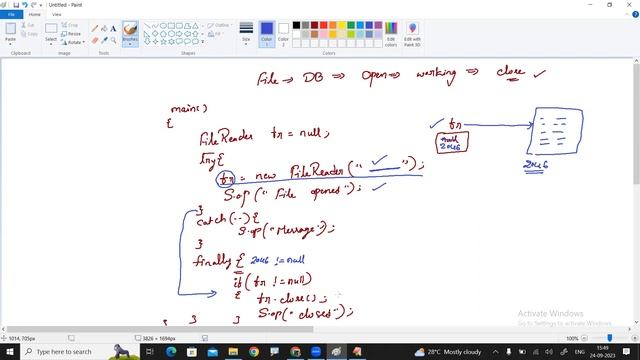 Untitled - Paint
File Home View
Paste Cut Copy Select Crop Resize Rotate Brushes Outline Fill Size Color 1 Color 2 Edit colors Edit with Paint 3D
Clipboard Image Tools Shapes Colors
File ⇒ DB ⇒ Open ⇒ working ⇒ close ✓
main()
{
FileReader fr = null;
try{
fr = new FileReader(" ✓ ");
S.op("File opened"); ✓
}
catch(--){
S.op("Message");
}
finally { 2046 != null
if(fr != null)
{ fr.close();
S.op("closed");
} }
✓ fr
null
2046
2046
Activate Windows
Go to Settings to activate Windows.
1014, 705px 3826 × 1694px 100%
Type here to search 28°C Mostly cloudy ENG 15:49
24-09-2023